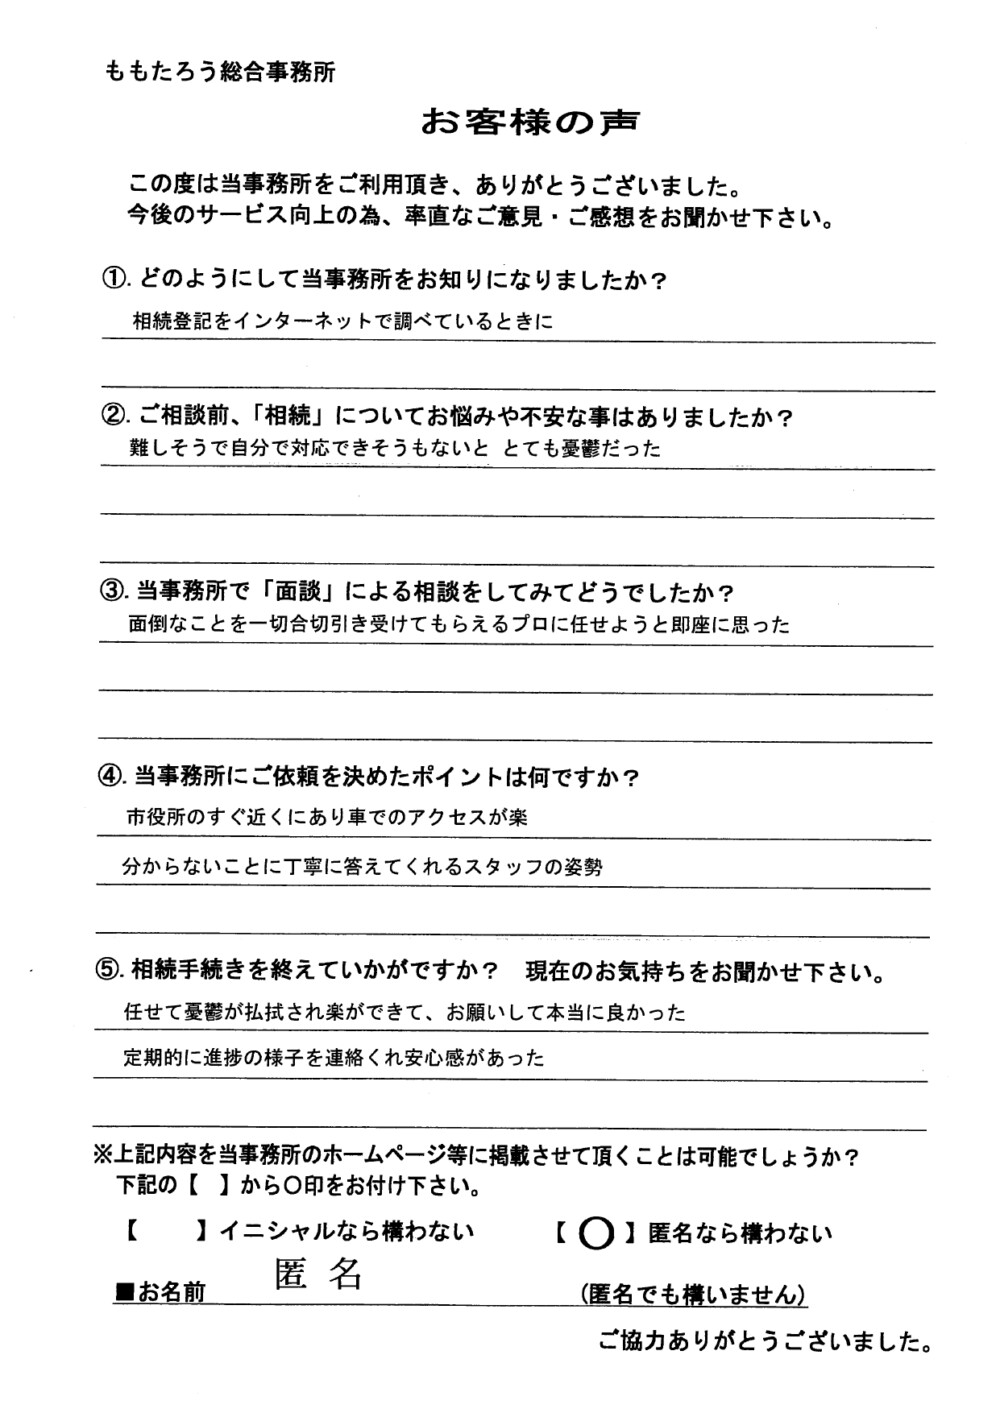 ももたろう総合事務所
お客様の声
この度は当事務所をご利用頂き、ありがとうございました。
今後のサービス向上の為、率直なご意見・ご感想をお聞かせ下さい。
①. どのようにして当事務所をお知りになりましたか？
相続登記をインターネットで調べているときに
②. ご相談前、「相続」についてお悩みや不安な事はありましたか？
難しそうで自分で対応できそうもないと とても憂鬱だった
③. 当事務所で「面談」による相談をしてみてどうでしたか？
面倒なことを一切合切引き受けてもらえるプロに任せようと即座に思った
④. 当事務所にご依頼を決めたポイントは何ですか？
市役所のすぐ近くにあり車でのアクセスが楽
分からないことに丁寧に答えてくれるスタッフの姿勢
⑤. 相続手続きを終えていかがですか？　現在のお気持ちをお聞かせ下さい。
任せて憂鬱が払拭され楽ができて、お願いして本当に良かった
定期的に進捗の様子を連絡くれ安心感があった
※上記内容を当事務所のホームページ等に掲載させて頂くことは可能でしょうか？
下記の【　】から〇印をお付け下さい。
【　　】イニシャルなら構わない　　【〇】匿名なら構わない
■お名前　匿 名　（匿名でも構いません）
ご協力ありがとうございました。